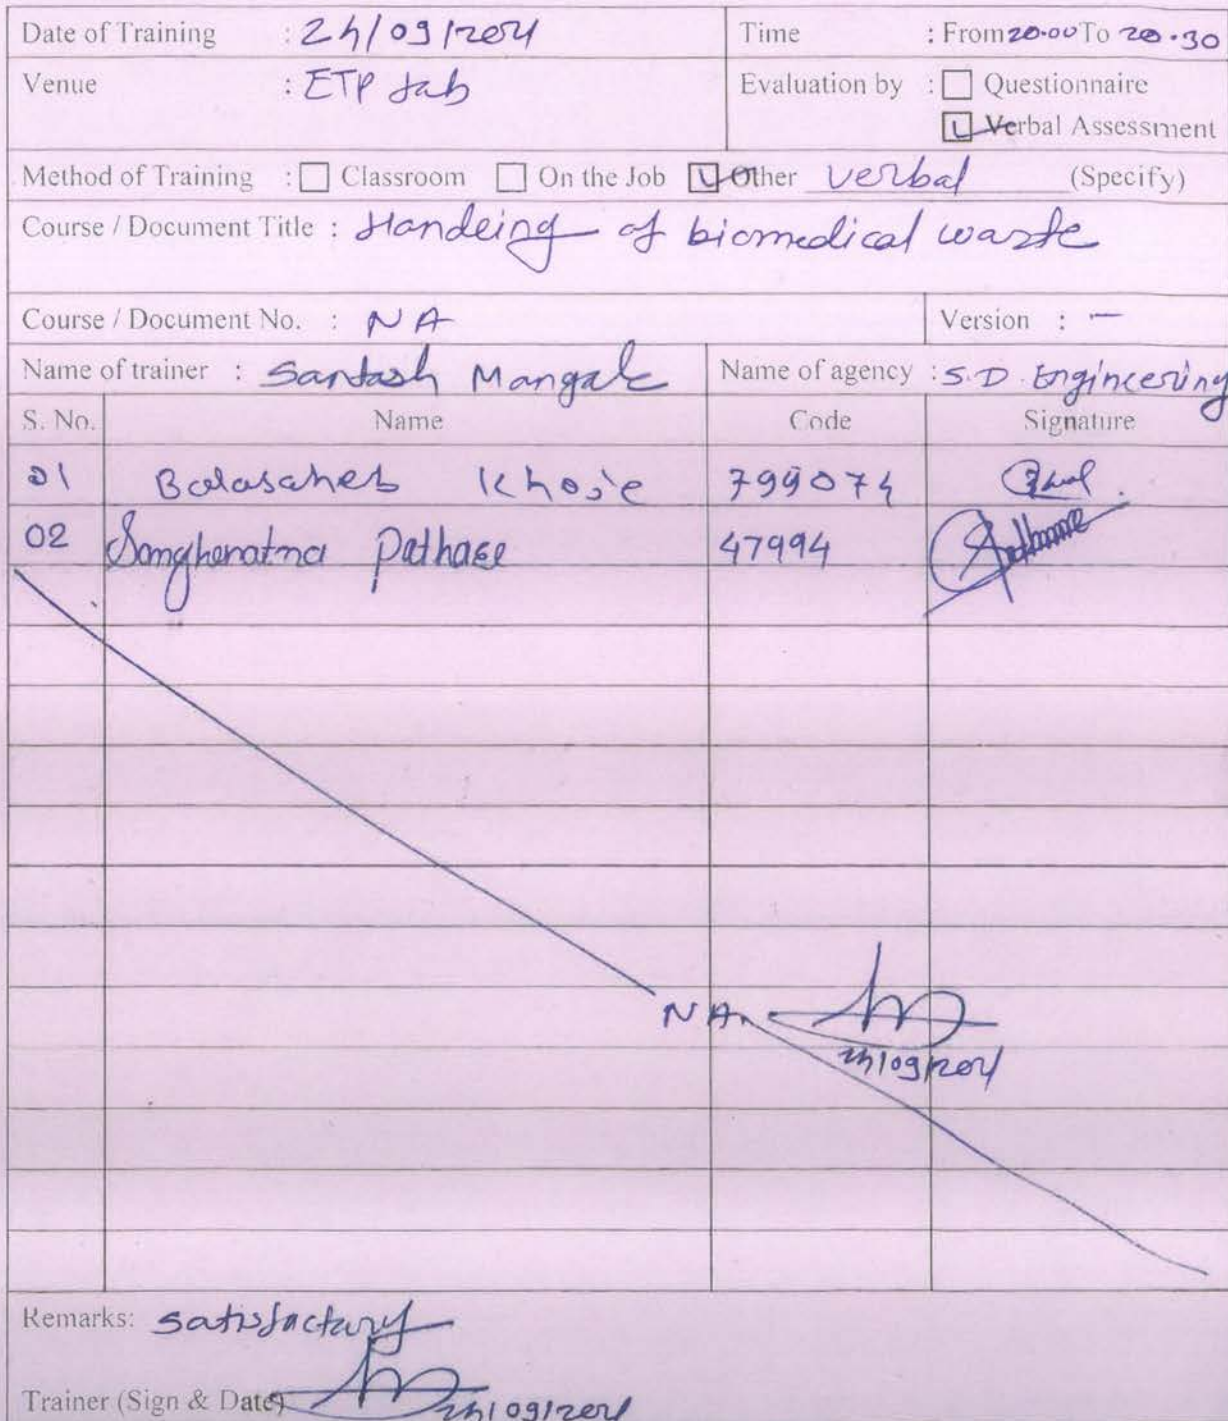 Date of Training : 24/09/2024 Time : From 20.00 To 20.30
Venue : ETP Lab Evaluation by : Questionnaire
Verbal Assessment
Method of Training : Classroom On the Job Other verbal (Specify)
Course / Document Title : Handeing of biomedical waste
Course / Document No. : NA Version : -
Name of trainer : Santosh Mangale Name of agency : S.D. Engineering
S. No. Name Code Signature
01 Balasaheb Khose 799074
02 Sanghenatna Pathase 47994
NA
24/09/2024
Remarks: satisfactory
Trainer (Sign & Date) 24/09/2024